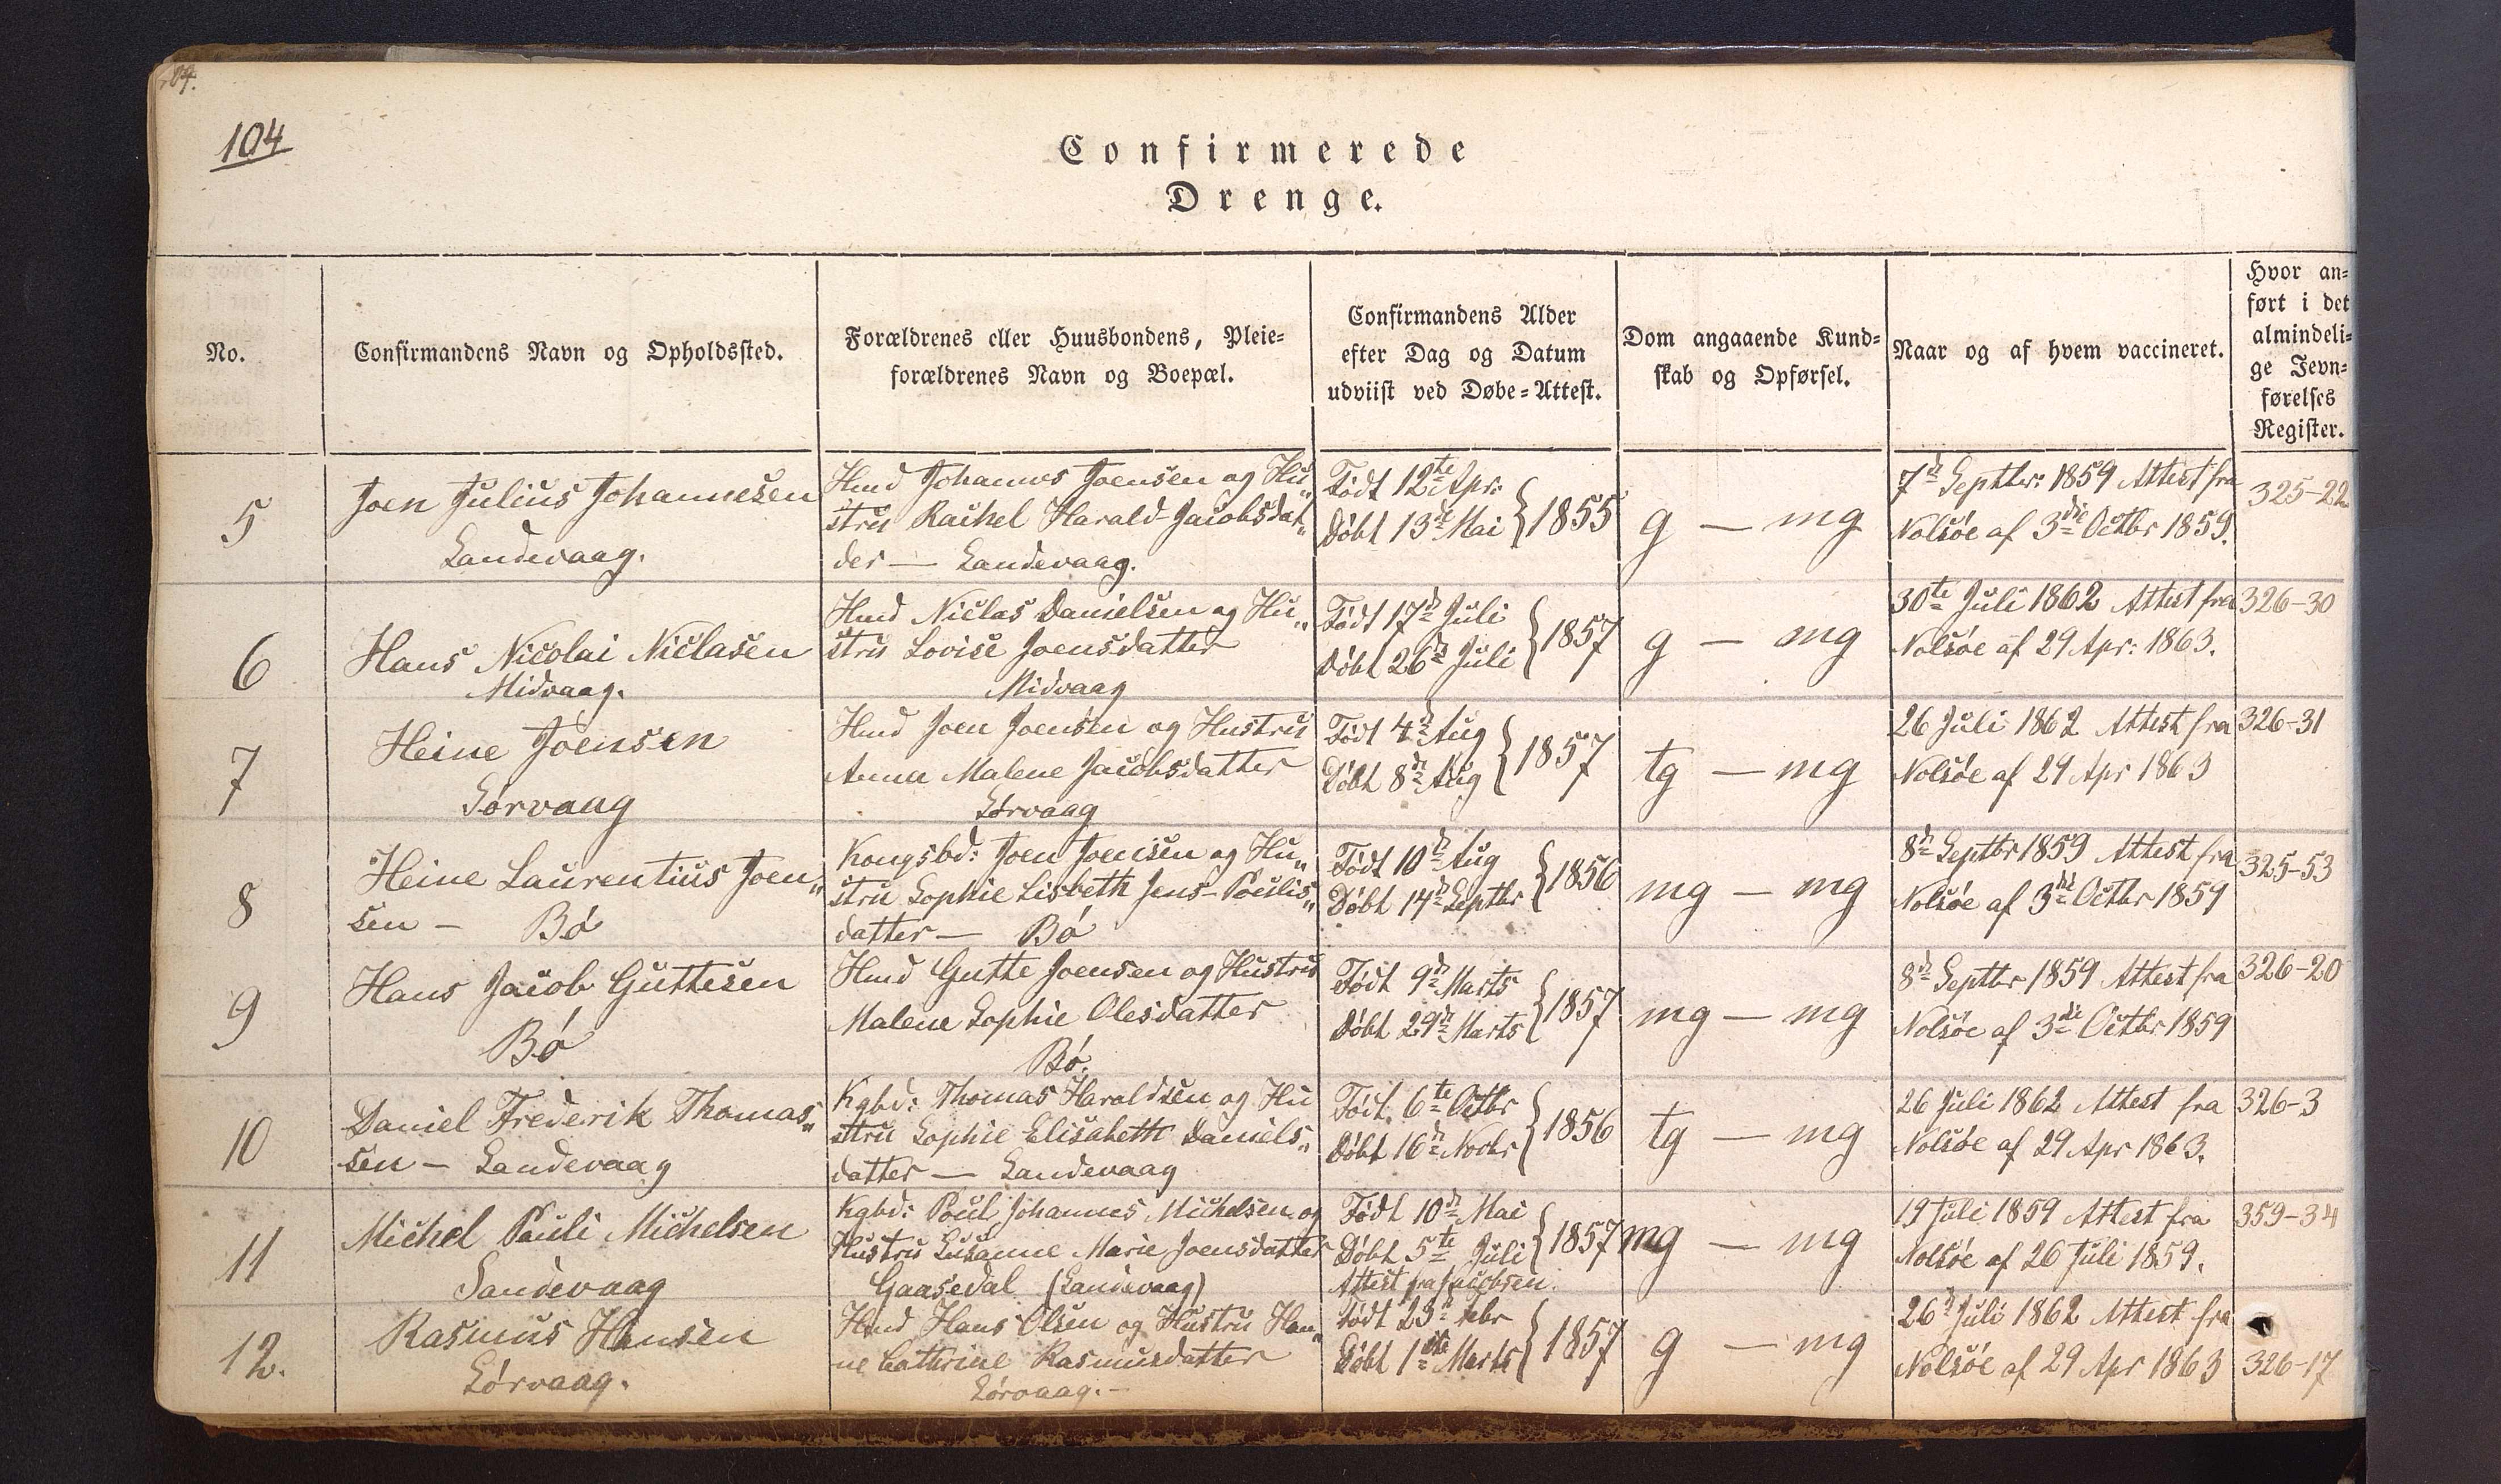 104
Confirmerede
Drenge.
No.
Confirmandens Navn og Opholdssted.
Forældrenes eller Huusbondens, Pleie=
forældrenes Navn og Boepæl.
Confirmandens Alder
efter Dag og Datum
udviist ved Døbe=Attest.
Dom angaaende Kund=
skab og Opførsel.
Naar og af hvem vaccineret.
Hvor an=
ført i det
almindeli=
ge Jevn=
førelses
Register.
5
Joen Julius Johannesen
Sandevaag.
Hmd Johannes Joensen og Hu„
stru Rachel Harald-Jacobsdat„
der — Sandevaag.
Født 12te Apr:
Døbt 13de Mai } 1855
g — mg
7d Septbr: 1859 Attest fra
Nolsøe af 3die Octbr 1859.
325-22
6
Hans Nicolai Niclasen
Midvaag.
Hmd Niclas Danielsen og Hu„
stru Lovise Joensdatter
Midvaag
Født 17d Juli
Døbt 26d Juli } 1857
g — mg
30te Juli 1862 Attest fra
Nolsøe af 29 Apr: 1863.
326-30
7
Heine Joensen
Sørvaag
Hmd Joen Joensen og Hustru
Anna Malene Jacobsdatter
Sørvaag
Født 4d Aug
Døbt 8d Aug } 1857
tg — mg
26 Juli 1862 Attest fra
Nolsøe af 29 Apr 1863
326-31
8
Heine Laurentius Joen„
sen — Bø
Kongsbd: Joen Joensen og Hu„
stru Sophie Lisbeth Jens-Poulis„
datter — Bø
Født 10d Aug
Døbt 14d Septbr } 1856
mg — mg
8d Septbr 1859 Attest fra
Nolsøe af 3die Octbr 1859
325-53
9
Hans Jacob Guttesen
Bø
Hmd Gutte Joensen og Hustru
Malene Sophie Olesdatter
Bø.
Født 9d Marts
Døbt 29d Marts } 1857
mg — mg
8d Septbr 1859 Attest fra
Nolsøe af 3die Octbr 1859
326-20
10
Daniel Frederik Thomas„
sen — Sandevaag
Kgbd: Thomas Haraldsen og Hu
stru Sophie Elisabeth Daniels„
datter — Sandevaag
Født 6te Octbr
Døbt 16d Novbr } 1856
tg — mg
26 Juli 1862 Attest fra
Nolsøe af 29 Apr 1863.
326-3
11
Michel Pauli Michelsen
Sandevaag
Kgbd: Poul Johannes Michelsen og
Hustru Susanne Marie Joensdatter
Gaasedal (Sandevaag)
Født 10d Mai
Døbt 5te Juli } 1857
Attest fra Jacobsen.
mg — mg
19 Juli 1859 Attest fra
Nolsøe af 26 Juli 1859.
359-34
12.
Rasmus Hansen
Sørvaag.
Hmd Hans Olsen og Hustru Han„
ne Cathrine Rasmusdatter
Sørvaag.—
Født 23d Febr
Døbt 1ste Marts } 1857
g — mg
26d Juli 1862 Attest fra
Nolsøe af 29 Apr 1863
326-17